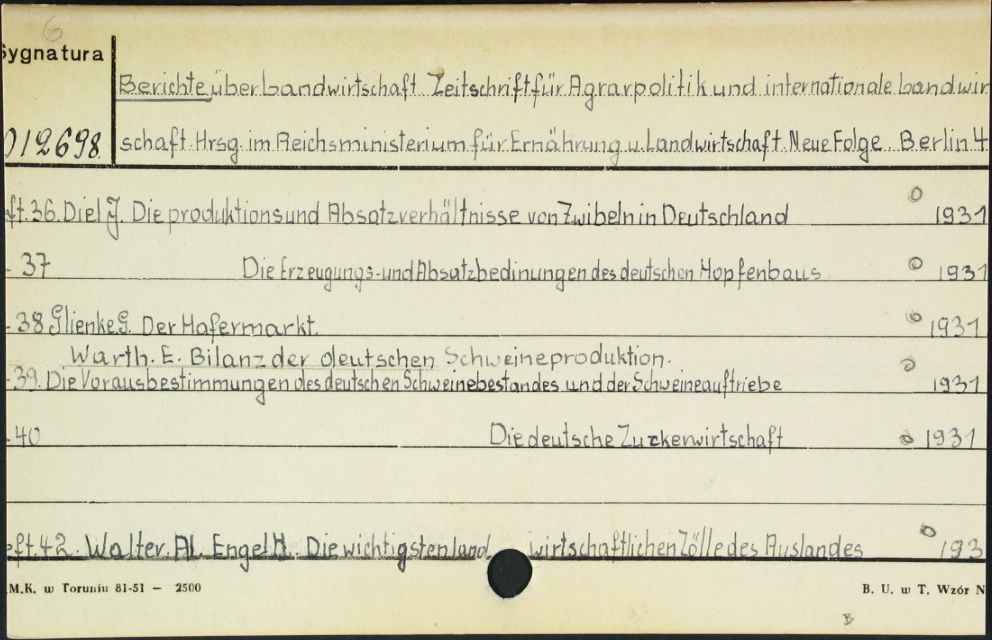 6
Sygnatura
Berichte über Landwirtschaft. Zeitschrift für Agrarpolitik und internationale Landwir
012698 schaft. Hrsg. im Reichsministerium für Ernährung u. Landwirtschaft. Neue Folge. Berlin. 4
ft. 36. Diel J. Die produktions und Absatzverhältnisse von Zwibeln in Deutschland 1931
- 37 Die Erzeugungs- und Absatzbedinungen des deutschen Hopfenbaus 1931
- 38 Glienke G. Der Hafermarkt. 1931
Warth. E. Bilanz der deutschen Schweineproduktion.
- 39. Die Vorausbestimmungen des deutschen Schweinebestandes und der Schweineauftriebe 1931
- 40 Die deutsche Zuckerwirtschaft 1931
eft. 42. Walter. Al. Engel H. Die wichtigsten land wirtschaftlichen Zölle des Auslandes 193
M.K. w Toruniu 81-51 — 2500 B. U. w T. Wzór N
B